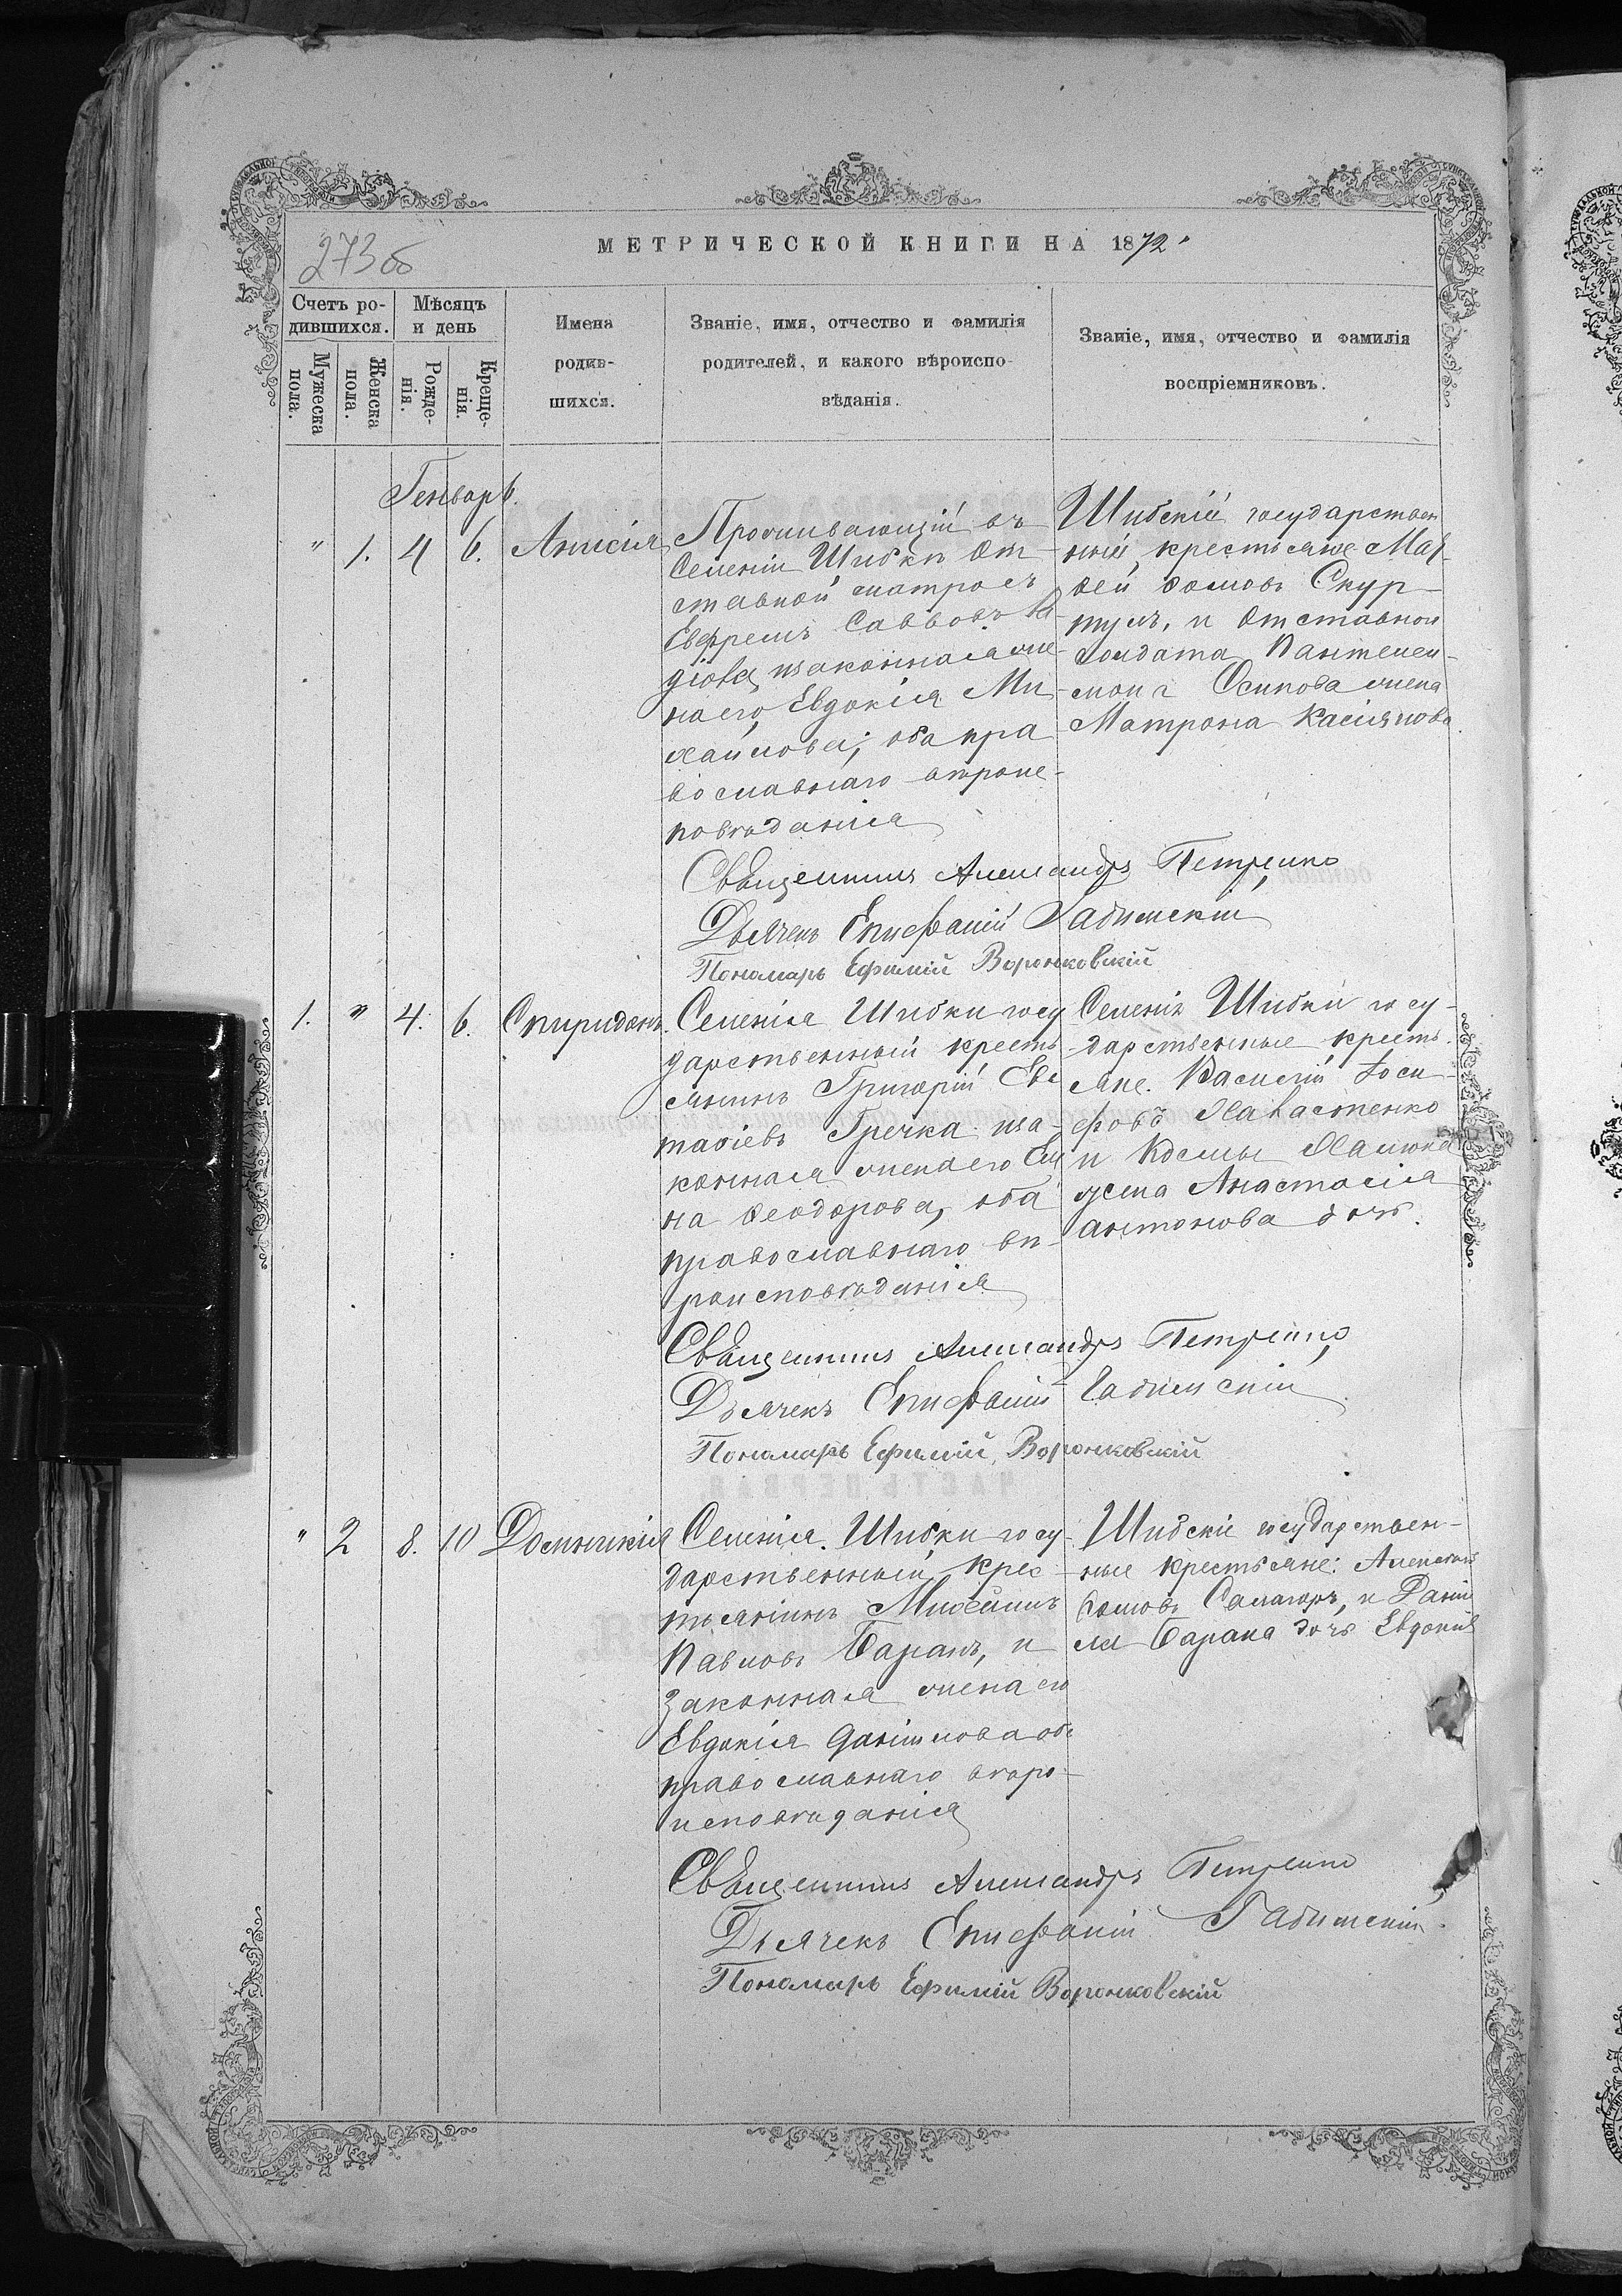 273 об
МЕТРИЧЕСКОЙ КНИГИ НА 1872
Счетъ ро-
дившихся.
Мѣсяцъ
и день
Мужеска
пола.
Женска
пола.
Рожде-
нія.
Креще-
нія.
Имена
родив-
шихся.
Званіе, имя, отчество и фамилія
родителей, и какого вѣроиспо-
вѣданія.
Званіе, имя, отчество и фамилія
воспріемниковъ.
Генварь.
" 1. 4 6. Анисія
Проживающій въ
Селеніи Шибки от-
ставной матросъ
Евфремъ Саввовъ
изаконная же-
на его Евдокія Ми-
хаилова; оба пра
вославнаго вѣроис-
повѣданія
Шибскій государствен
ный крестьяне
Скур-
тулъ, и отставнои
солдата Пантелеи-
мона Осипова жена
Матрона Касіянова
Священникъ Александръ Петренко
Дьячекъ Епифаній Гадинскій
Пономарь Ефимій Воронковскій
1. " 4. 6. Спиридонъ.
Селенія Шибки госу
дарственный кресть
янинъ Григорій Евс
тафіевъ Гречка иза-
конная жена его Еле
на Феодорова, оба
православнаго вѣ-
роисповѣданія
Селенія Шибки госу-
дарственные кресть-
яне. Василій Іоси-
фовъ
и Космы
жена Анастасія
антонова дочь.
Священникъ Александръ Петренко
Дьячекъ Епифаній Гадинскій
Пономарь Ефимій Воронковскій
" 2 8. 10 Домникія
Селенія. Шибки госу-
дарственный крес-
тьянинъ Михаилъ
Павловъ Баранъ, и
законная жена его
Евдокія Даніилова оба
православнаго вѣро-
исповѣданія
Шибскіе государствен-
ные крестьяне: Алексѣй
и Даніи
ла Барана дочь Евдокія
Священникъ Александръ Петренко
Дьячекъ Епифаній Гадинскій.
Пономарь Ефимій Воронковскій